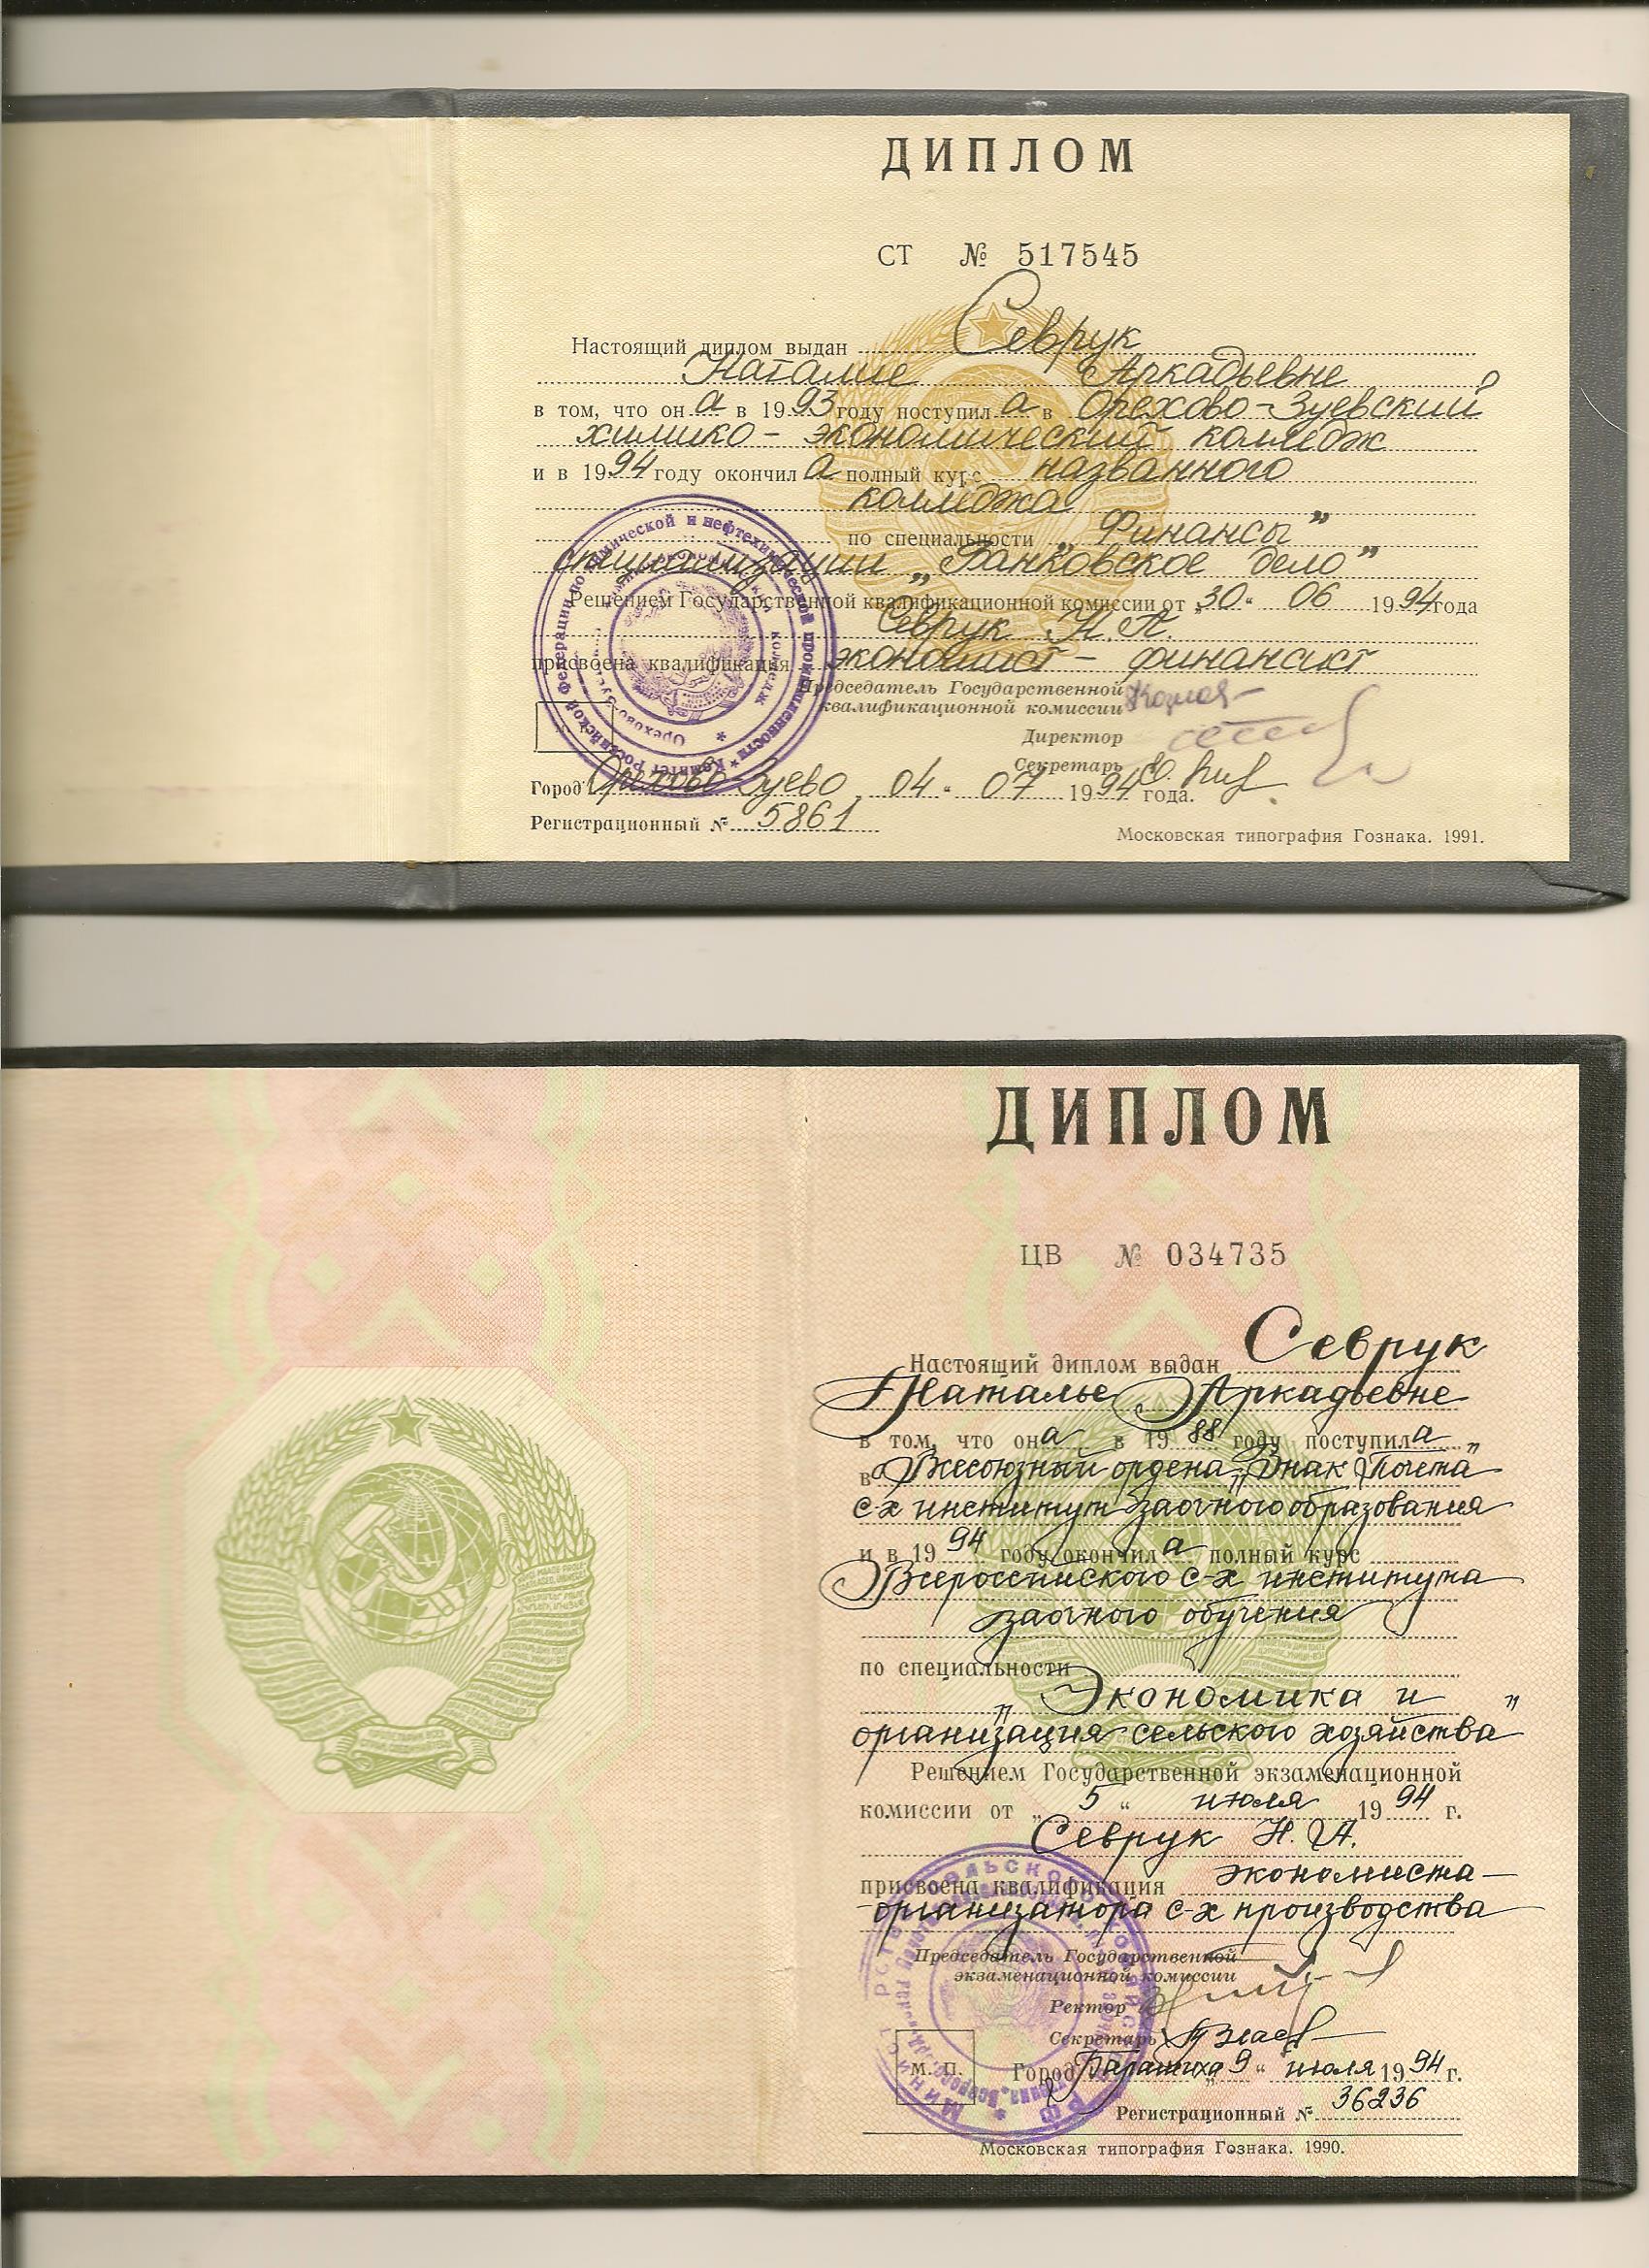 ДИПЛОМ
СТ № 517545
Настоящий диплом выдан Севрук
Наталие Аркадьевне
в том, что она в 1993 году поступила в Орехово-Зуевский
химико-экономический колледж
и в 1994 году окончила полный курс названного
колледжа
по специальности „Финансы"
специализации „Банковское дело"
Решением Государственной квалификационной комиссии от „30" 06 1994 года
Севрук Н.А.
присвоена квалификация экономист-финансист
Председатель Государственной
квалификационной комиссии
Директор
Секретарь
Город Орехово-Зуево 04 " 07 1994 года.
Регистрационный № 5861
Московская типография Гознака. 1991.
ДИПЛОМ
ЦВ № 034735
Настоящий диплом выдан Севрук
Наталье Аркадьевне
в том, что она в 1988 году поступила
во Всесоюзный ордена „Знак Почета"
с-х институт заочного образования
и в 1994 году окончила полный курс
Всероссийского с-х института
заочного обучения
по специальности
„Экономика и
организация сельского хозяйства"
Решением Государственной экзаменационной
комиссии от „5" июля 1994 г.
Севрук Н.А.
присвоена квалификация экономиста-
организатора с-х производства
Председатель Государственной
экзаменационной комиссии
Ректор
Секретарь
М. П.
Город Балашиха „9" июля 1994 г.
Регистрационный № 36236
Московская типография Гознака. 1990.